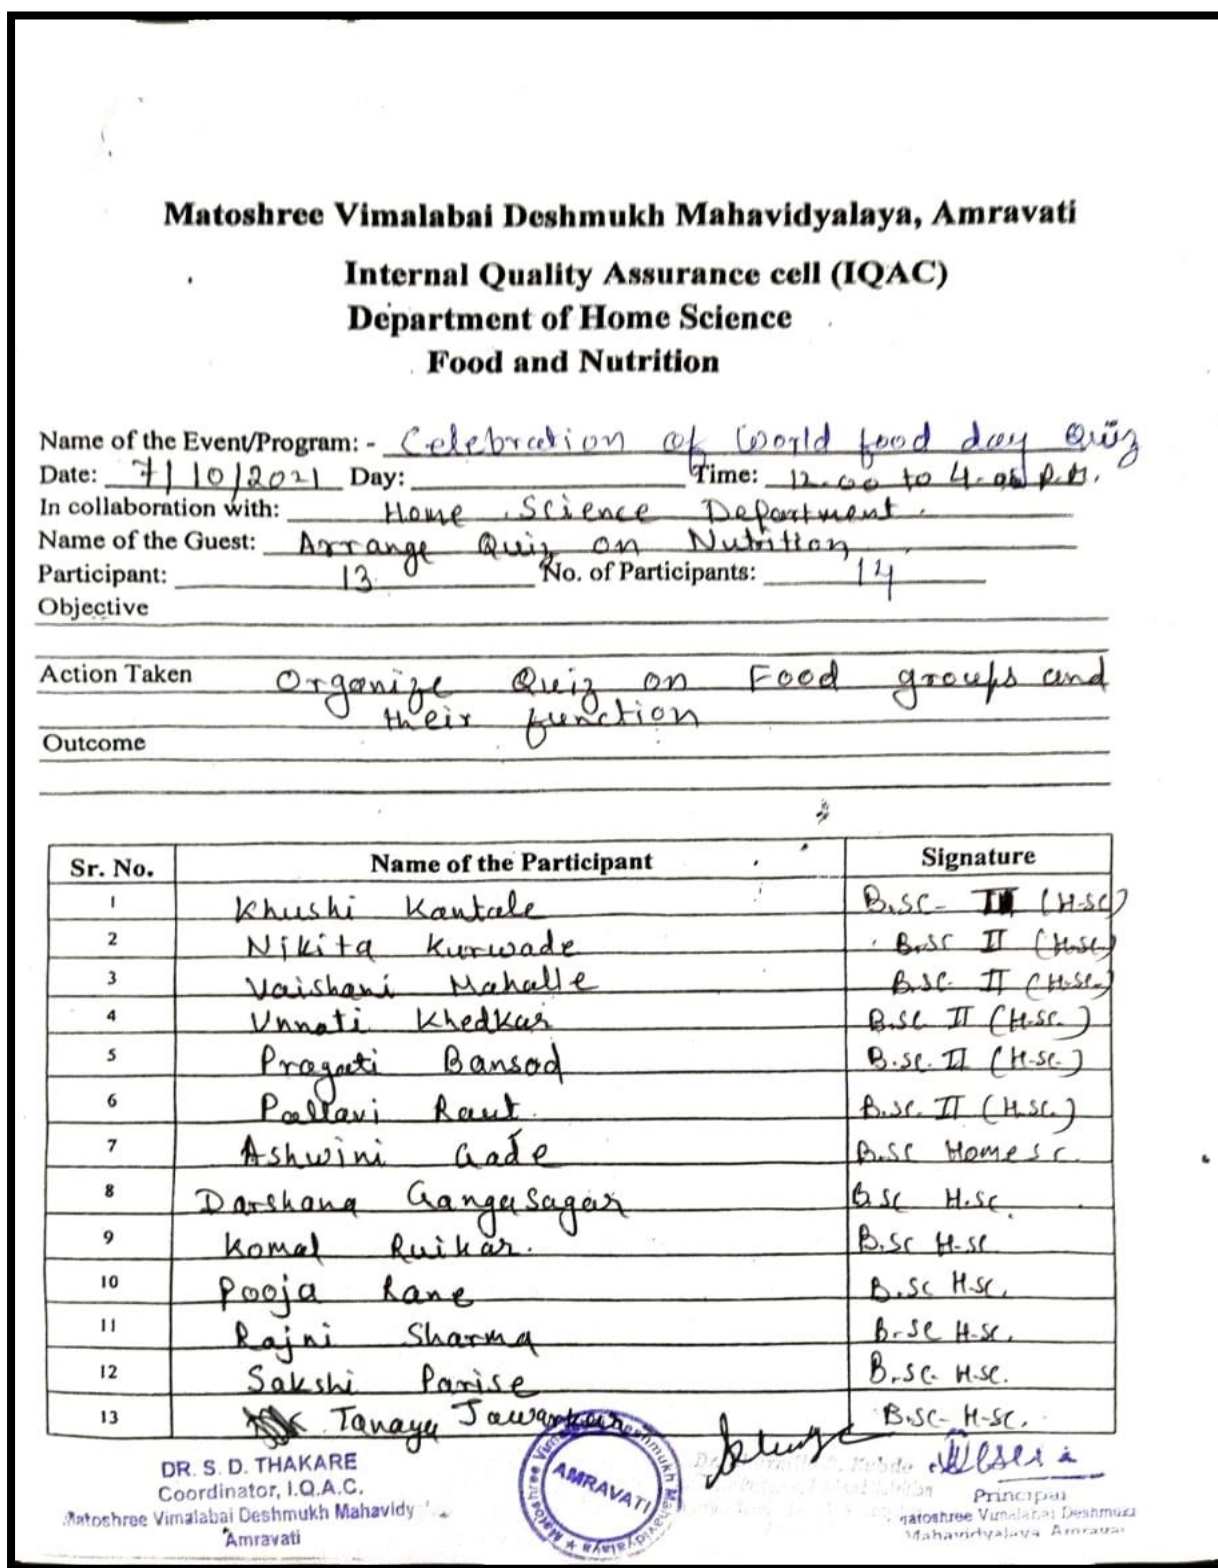 Matoshree Vimalabai Deshmukh Mahavidyalaya, Amravati
Internal Quality Assurance cell (IQAC)
Department of Home Science
Food and Nutrition
Name of the Event/Program: - Celebration of World food day Quiz
Date: 7/10/2021 Day: Time: 12.00 to 4.00 P.M.
In collaboration with: Home Science Department.
Name of the Guest: Arrange Quiz on Nutrition
Participant: 13 No. of Participants: 14
Objective
Action Taken Organize Quiz on Food groups and
their function
Outcome
Sr. No. Name of the Participant Signature
1 Khushi Kantale B.SC- II (H-SC)
2 Nikita Kurwade B.SC II (H.SC)
3 Vaishani Mahalle B.SC. II (H.SC.)
4 Unnati Khedkar B.SC II (H.SC.)
5 Pragati Bansod B.SC. II (H.SC.)
6 Pallavi Raut. B.SC. II (H.SC.)
7 Ashwini Gade B.SC Homesc.
8 Darshana Gangasagar B.SC H.SC.
9 Komal Ruikar. B.SC H-SC
10 Pooja Rane B.SC H.SC.
11 Rajni Sharma B.SC H.SC.
12 Sakshi Parise B.SC. H.SC.
13 Tanaya Jawarkar B.SC- H-SC.
DR. S. D. THAKARE
Coordinator, I.Q.A.C.
Matoshree Vimalabai Deshmukh Mahavidy
Amravati
Matoshree Vimalabai Deshmukh Mahavidyalaya
AMRAVATI
Principal
Matoshree Vimalabai Deshmukh
Mahavidyalaya Amravati